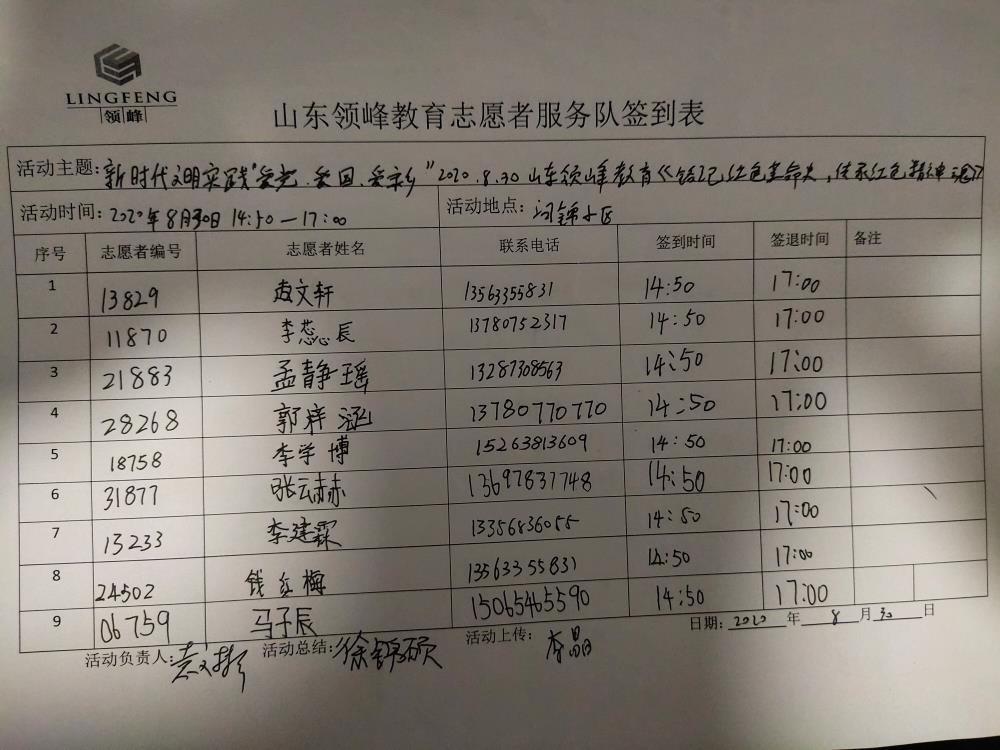 LINGFENG
领峰
山东领峰教育志愿者服务队签到表
活动主题:新时代文明实践"爱党.爱国.爱家乡"2020.8.30山东领峰教育《铭记红色革命史,传承红色精神魂》
活动时间:2020年8月30日 14:50—17:00 活动地点:锦小区
序号 志愿者编号 志愿者姓名 联系电话 签到时间 签退时间 备注
1 13829 文轩 13563355831 14:50 17:00
2 11870 李蕊辰 13780752317 14:50 17:00
3 21883 孟静瑶 13287308563 14:50 17:00
4 28268 郭梓涵 13780770770 14:50 17:00
5 18758 李学博 15263813609 14:50 17:00
6 31877 张云赫 13697837748 14:50 17:00
7 13233 李建霖 13356836055 14:50 17:00
8 24502 钱红梅 13563355831 14:50 17:00
9 06759 马子辰 15065465590 14:50 17:00
日期:2020年8月30日
活动负责人:袁文彬 活动总结:徐锦硕 活动上传:李晶